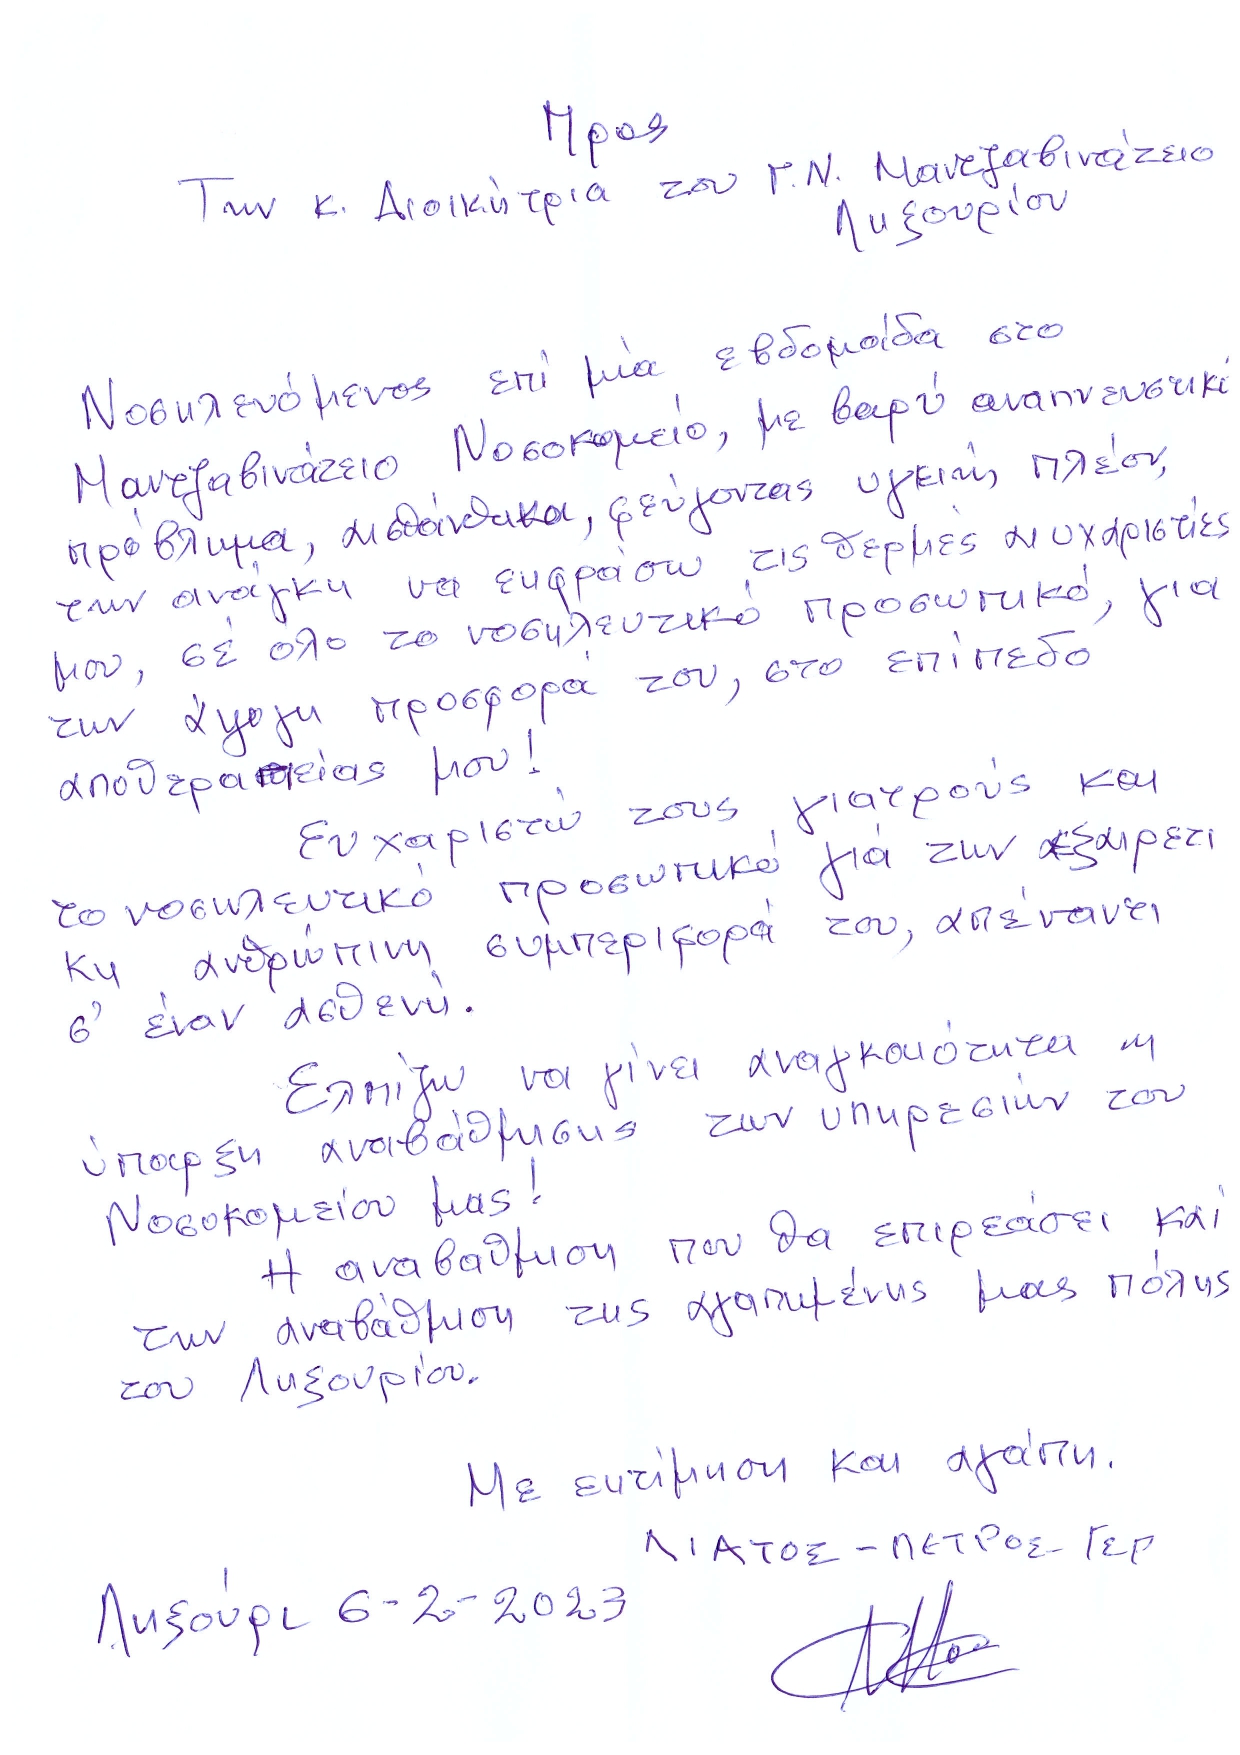 Προς
Την κ. Διοικήτρια του Γ.Ν. Μαντζαβινάτειο
Ληξουρίου
Νοσηλευόμενος επί μία εβδομάδα στο
Μαντζαβινάτειο Νοσοκομείο, με βαρύ αναπνευστικό
πρόβλημα, αισθάνθηκα, φεύγοντας υγειής πλέον,
την ανάγκη να εκφράσω τις θερμές ευχαριστίες
μου, σέ όλο το νοσηλευτικό προσωπικό, για
την άψογη προσφορά του, στο επίπεδο
αποθεραπείας μου!
Ευχαριστώ τους γιατρούς και
το νοσηλευτικό προσωπικό γιά την εξαιρετι
κη ανθρώπινη συμπεριφορά του, απέναντι
σ' έναν ασθενή.
Ελπίζω να γίνει αναγκαιότητα η
ύπαρξη αναβάθμισης των υπηρεσιών του
Νοσοκομείου μας!
Η αναβαθμιση που θα επιρεάσει καί
την αναβάθμιση της αγαπημένης μας πόλης
του Ληξουρίου.
Με εκτίμηση και αγάπη.
ΛΙΑΤΟΣ - ΠΕΤΡΟΣ - ΓΕΡ
Ληξούρι 6-2-2023